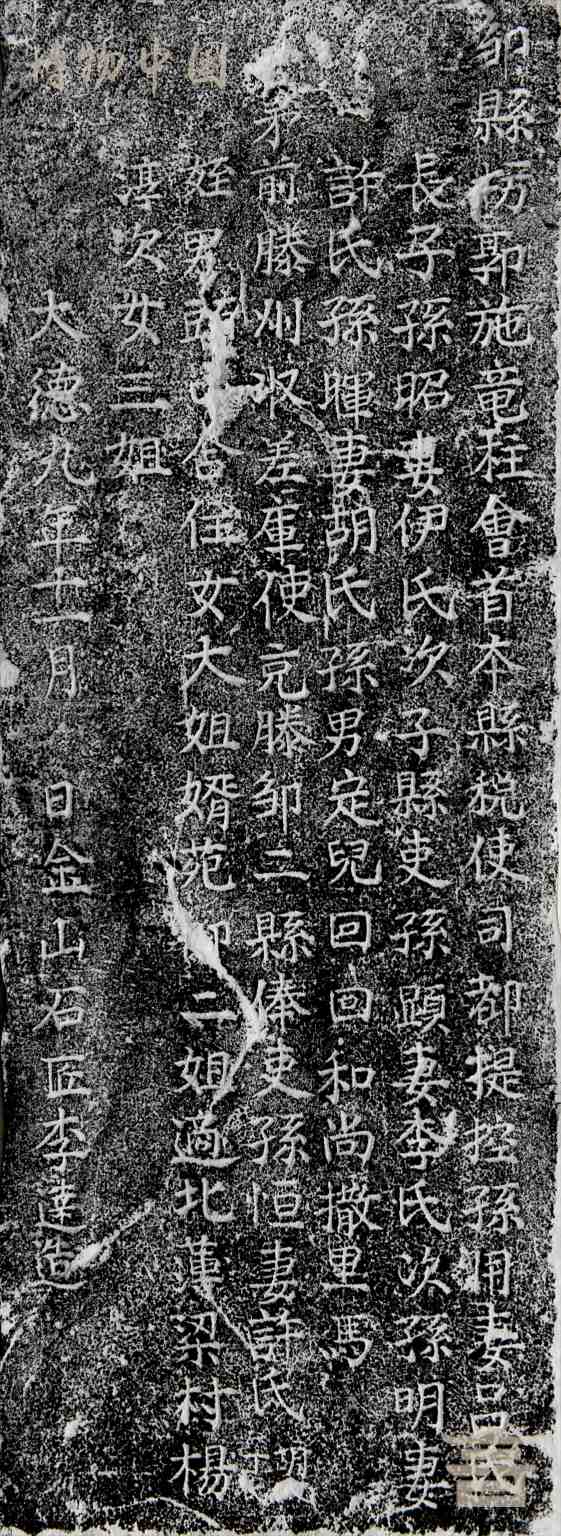 邹縣坊郭施竜柱會首本縣税使司都提控孫用妻吕氏
長子孫昭妻伊氏次子縣吏孫顕妻李氏次孫明妻
許氏孫暉妻胡氏孫男定兒回回和尚撒里馬
弟前滕州收差庫使充滕邹二縣俸吏孫恒妻許氏胡
姪男 合住女大姐婿范 二姐適北 梁村楊
次女三姐
大德九年十一月 日金山石匠李達造
博物中国